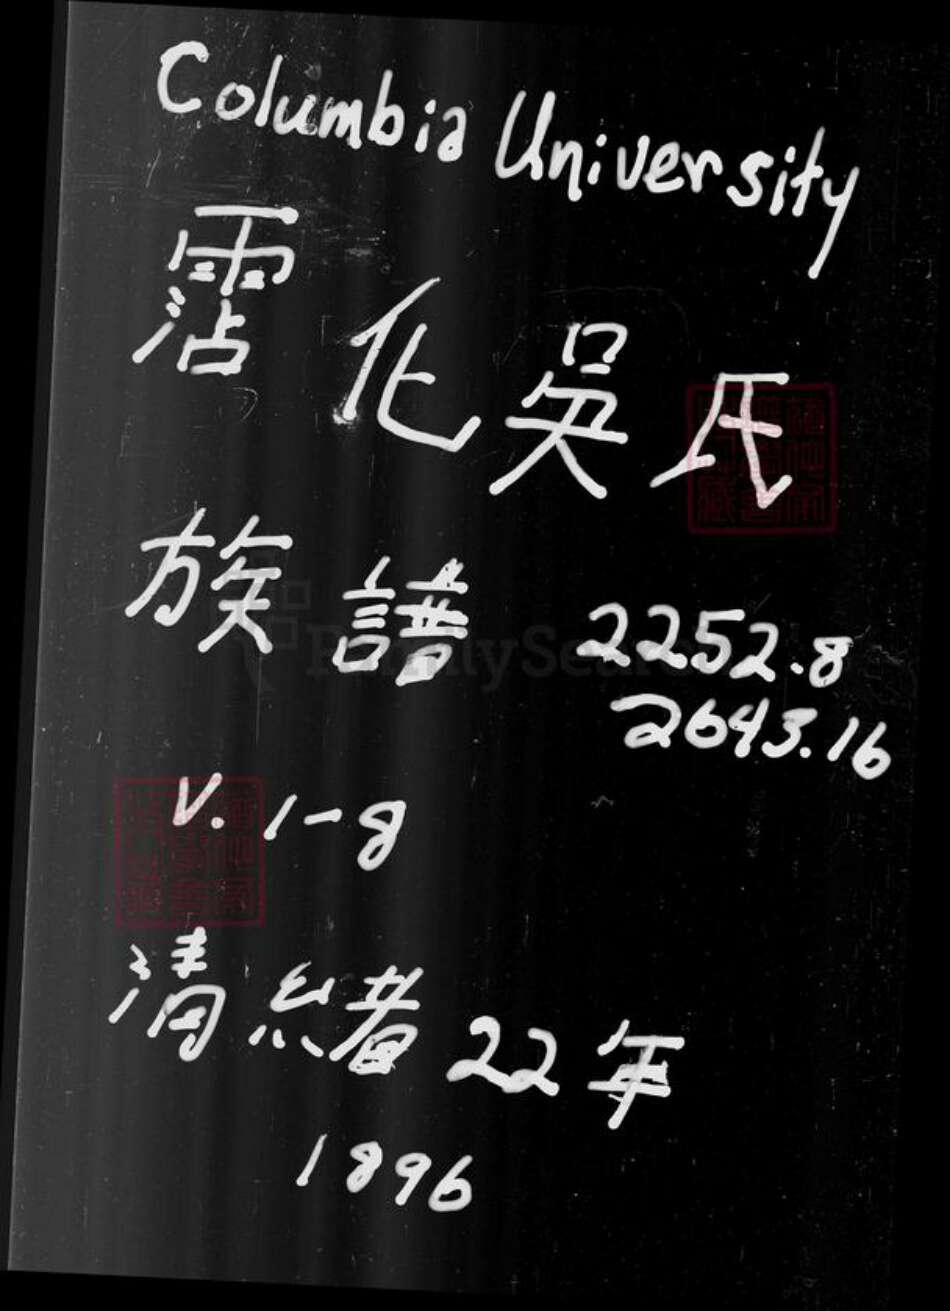 Columbia University
霑化吳氏
族譜 2252.8
2643.16
v. 1-8
清緒22年
1896
FamilySearch